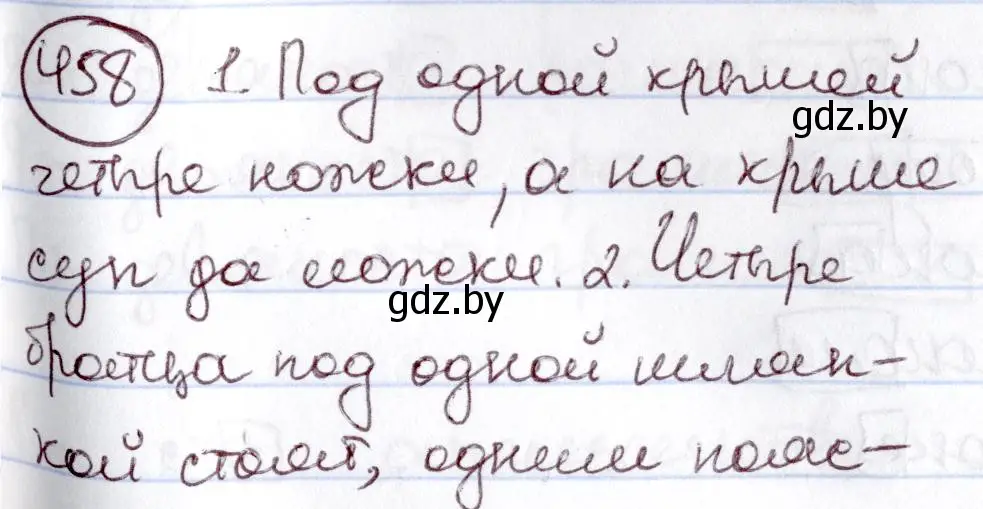 458 1. Под одной крышей
gdz.by
четыре ножки, а на крыше
суп да ложки. 2. Четыре
gdz.by
братца под одной шляп-
кой стоят, одним пояс-